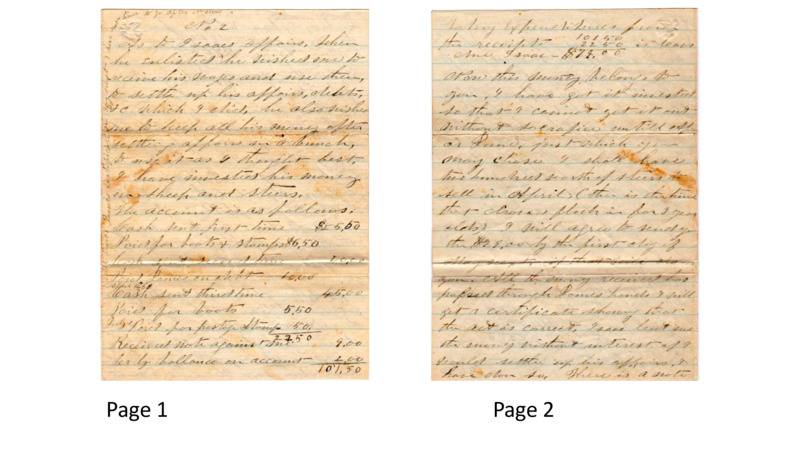 No 2
As to Isaacs affairs, when
he enlisted he wished me to
receive his wages and use them,
to settle up his affairs, debts,
&c which I did, he also wished
me to keep all his money after
settling affairs in a bunch,
to use it as I thought best,
I have invested his money
in sheep and steers.
The account is as follows.
Cash sent first time $55,00
Paid for boots & stamps $6,50
Cash sent second time
Paid James on debt 10,00
Cash sent third time 45,00
Paid for boots 5,50
Paid for postage stamps 50
22 50
Received note against 9.00
by ballance on account 2,00
101,50
Taking expenditures from
the receipts 101 50 22 50 it leaves
due Isaac - $79.00
Now this money belongs to
you, I have got it invested
so that I cannot get it out
without sacrifice until
or June, just which you
may chose I shall have
two hundred worth of steers to
sell in April (this is the time
that closes for 3 year
olds) I will agree to send you
the $79,00 by the first day of
you. All the money received has
passed through James hands I will
get a certificate showing that
the act is correct, Isaac lent me
the money without interest if I
would settle up his affairs, I
have don so, Here is a note
Page 1
Page 2